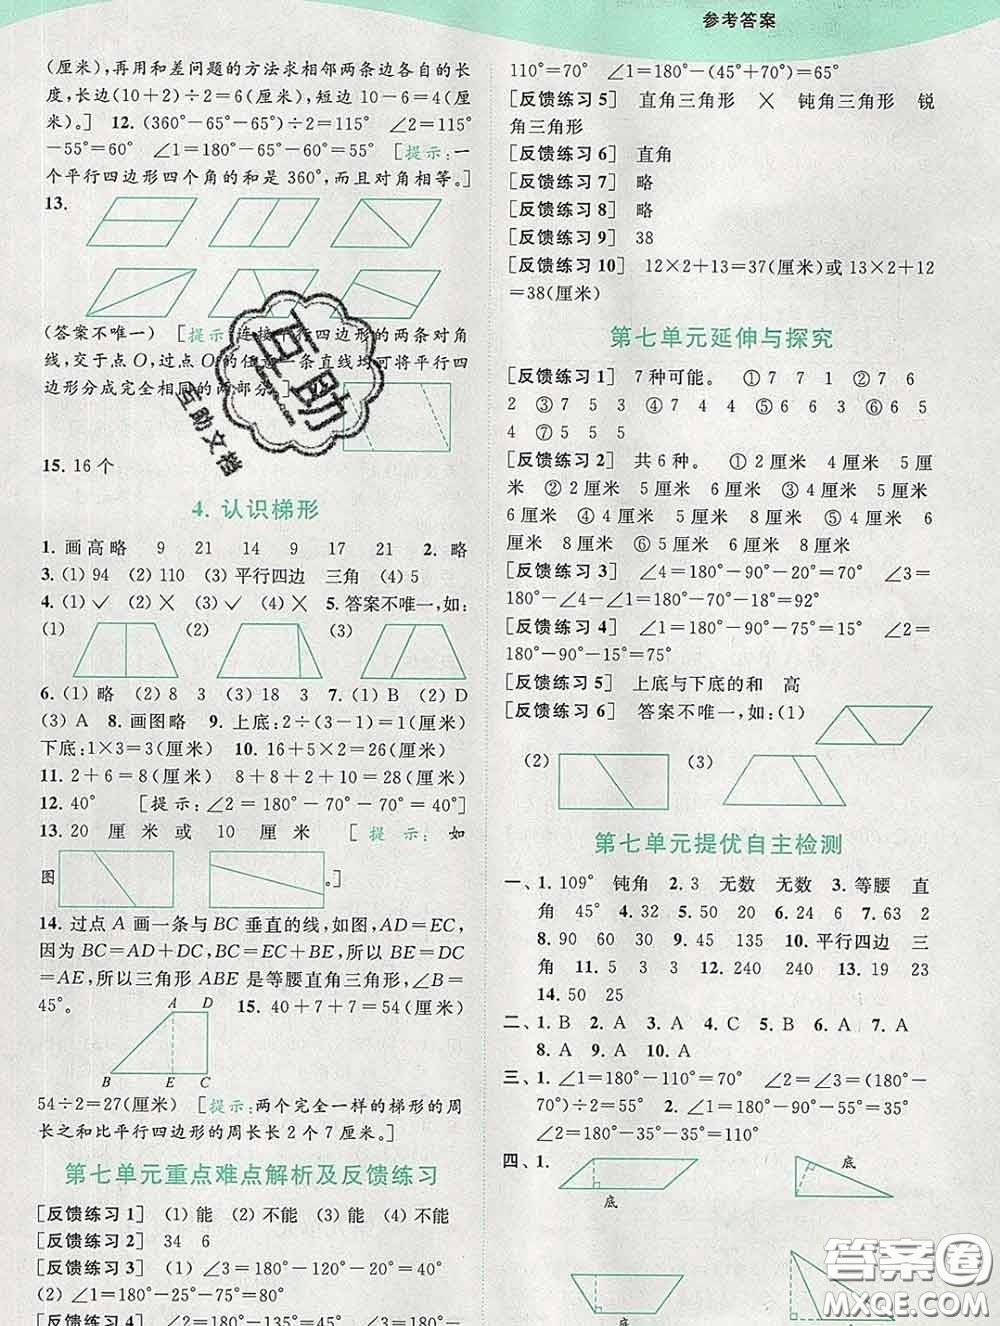 参考答案
(厘米),再用和差问题的方法求相邻两条边各自的长
度,长边(10+2)÷2=6(厘米),短边10-6=4(厘
米)。] 12. (360°-65°-65°)÷2=115° ∠2=115°
-55°=60° ∠1=180°-65°-60°=55° [提示:一
个平行四边形四个角的和是360°,而且对角相等。]
13.
(答案不唯一) [提示:连接平行四边形的两条对角
线,交于点O,过点O的任意一条直线均可将平行四
边形分成完全相同的两部分。]
15. 16个
4. 认识梯形
1. 画高略 9 21 14 9 17 21 2. 略
3. (1) 94 (2) 110 (3) 平行四边 三角 (4) 5
4. (1) ✓ (2) × (3) ✓ (4) × 5. 答案不唯一,如:
(1) (2) (3)
6. (1) 略 (2) 8 3 (3) 18 3 7. (1) B (2) D
(3) A 8. 画图略 9. 上底:2÷(3-1)=1(厘米)
下底:1×3=3(厘米) 10. 16+5×2=26(厘米)
11. 2+6=8(厘米) 8+8+2+10=28(厘米)
12. 40° [提示:∠2=180°-70°-70°=40°]
13. 20 厘米或 10 厘米 [提示:如
图 。]
14. 过点A画一条与BC垂直的线,如图,AD=EC,
因为BC=AD+DC,BC=EC+BE,所以BE=DC
=AE,所以三角形ABE是等腰直角三角形,∠B=
45°。 15. 40+7+7=54(厘米)
A D
B E C
54÷2=27(厘米) [提示:两个完全一样的梯形的周
长之和比平行四边形的周长长2个7厘米。]
第七单元重点难点解析及反馈练习
[反馈练习1] (1) 能 (2) 不能 (3) 能 (4) 不能
[反馈练习2] 34 6
[反馈练习3] (1) ∠3=180°-120°-20°=40°
(2) ∠1=180°-25°-75°=80°
[反馈练习4] ∠2=180°-135°=45°
110°=70° ∠1=180°-(45°+70°)=65°
[反馈练习5] 直角三角形 × 钝角三角形 锐
角三角形
[反馈练习6] 直角
[反馈练习7] 略
[反馈练习8] 略
[反馈练习9] 38
[反馈练习10] 12×2+13=37(厘米)或13×2+12
=38(厘米)
第七单元延伸与探究
[反馈练习1] 7种可能。 ① 7 7 1 ② 7 6
2 ③ 7 5 3 ④ 7 4 4 ⑤ 6 6 3 ⑥ 6 5
4 ⑦ 5 5 5
[反馈练习2] 共6种。 ① 2厘米 4厘米 5厘
米 ② 2厘米 5厘米 6厘米 ③ 4厘米 5厘米
6厘米 ④ 4厘米 5厘米 8厘米 ⑤ 4厘米 6
厘米 8厘米 ⑥ 5厘米 6厘米 8厘米
[反馈练习3] ∠4=180°-90°-20°=70° ∠3=
180°-∠4-∠1=180°-70°-18°=92°
[反馈练习4] ∠1=180°-90°-75°=15° ∠2=
180°-90°-15°=75°
[反馈练习5] 上底与下底的和 高
[反馈练习6] 答案不唯一,如:(1)
(2) (3)
第七单元提优自主检测
一、1. 109° 钝角 2. 3 无数 无数 3. 等腰 直
角 45° 4. 50 5. 50 20 6. 24 6 7. 63 2
8. 90 60 30 9. 45 135 10. 平行四边 三
角 11. 5 3 3 12. 240 240 13. 19 23
14. 50 25
二、1. B 2. A 3. A 4. C 5. B 6. A 7. A
8. A 9. A 10. A
三、1. ∠1=180°-110°=70° ∠2=∠3=(180°-
70°)÷2=55° 2. ∠1=180°-90°-55°=35°
∠2=180°-35°-35°=110°
四、1.
底
底
底
底
互助
互助文档
答案圈
MXQE.COM